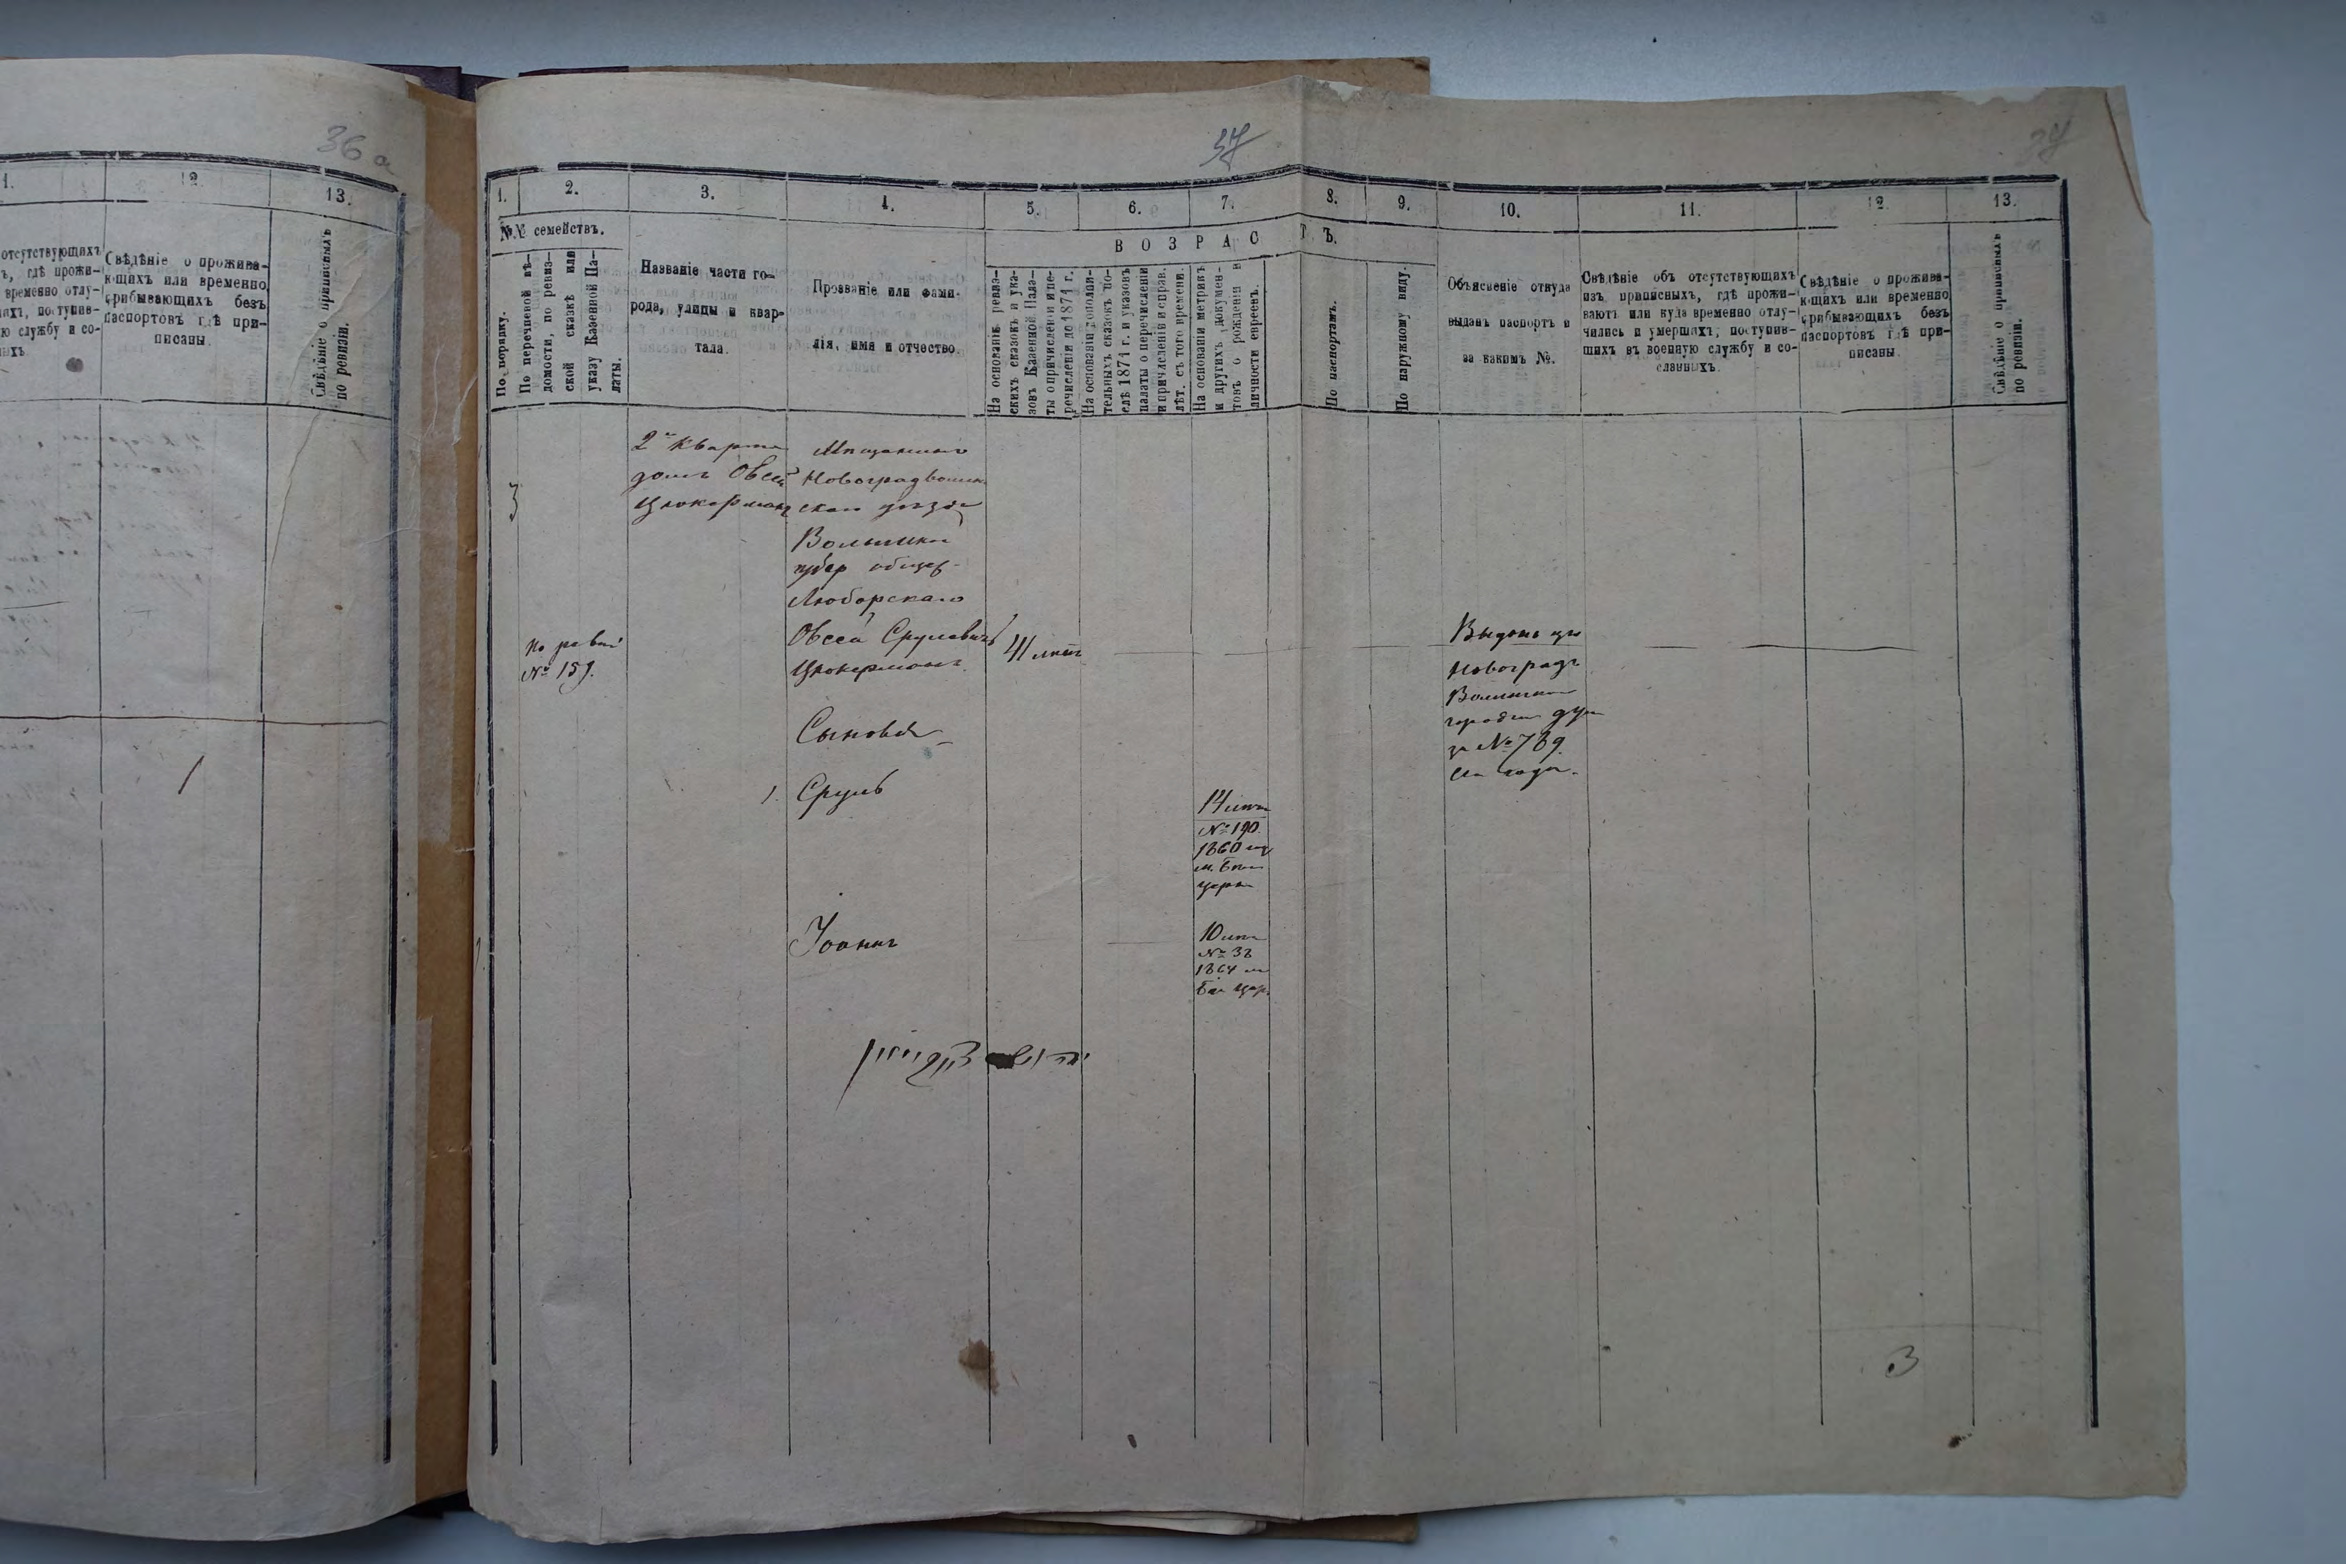 36 а
1.
12.
13.
отсутствующихъ
ъ, гдѣ прожи-
временно отлу-
ихъ, поступив-
ю службу и со-
ныхъ
Свѣдѣніе о прожива-
ющихъ или временно
прибывающихъ безъ
паспортовъ гдѣ при-
писаны.
Свѣдѣніе о приписныхъ
по ревизіи.
1
37
37
1.
2.
3.
4.
5.
6.
7.
8.
9.
10.
11.
12.
13.
№№ семействъ.
По порядку.
По перечневой вѣ-
домости, по ревиз-
ской сказкѣ или
указу Казенной Па-
латы.
Названіе части го-
рода, улицы и квар-
тала.
Прозваніе или фами-
лія, имя и отчество.
ВОЗРАСТЪ.
На основаніи ревиз-
скихъ сказокъ и ука-
зовъ Казенной Пала-
ты о причисленіи и пе-
речисленіи до 1871 г.
На основаніи дополни-
тельныхъ сказокъ по-
слѣ 1871 г. и указовъ
палаты о перечисленіи
и причисленіи и справ.
лѣт. съ того времени.
На основаніи метрикъ
и другихъ докумен-
товъ о рожденіи и
личности евреевъ.
По паспортамъ.
По наружному виду.
Объясненіе откуда
выданъ паспортъ и
за какимъ №.
Свѣдѣніе объ отсутствующихъ
изъ приписныхъ, гдѣ прожи-
ваютъ или куда временно отлу-
чились и умершихъ, поступив-
шихъ въ военную службу и со-
сланныхъ.
Свѣдѣніе о прожива-
ющихъ или временно
прибывающихъ безъ
паспортовъ гдѣ при-
писаны.
Свѣдѣніе о приписныхъ
по ревизіи.
3
2й Кварта
домъ Овсей
Цюкерманъ
Новоградволын
скаго уѣзда
Волынско
губер общес
Любарскаго
по ревиз
№ 159.
Овсей Сруловичъ
Цюкерманъ
41 лѣтъ
Выданъ изъ
Новоградъ
Волынско
городск дум
за № 789.
Сыновья
1. Сруль
14 лѣтъ
№ 190
1860
м. Бѣл
церк
Іоаннъ
10 лѣтъ
№ 38
1864
Бѣл Цер.
3